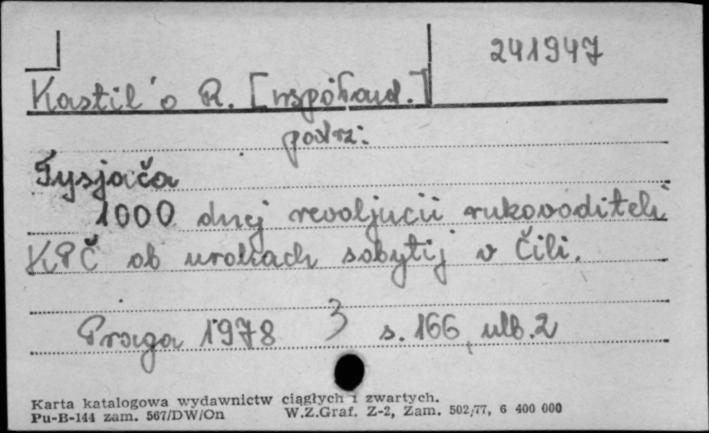 241947
Kastil'o R. [współaud.]
patrz:
Tysjača
1000 dnej revoljucii rukovoditeli
KPČ ob urokach sobytij v Čili.
Praga 1978 3 s. 166, ulb. 2
Karta katalogowa wydawnictw ciągłych i zwartych.
Pu-B-144 zam. 567/DW/On W.Z.Graf. Z-2, Zam. 502/77, 6 400 000